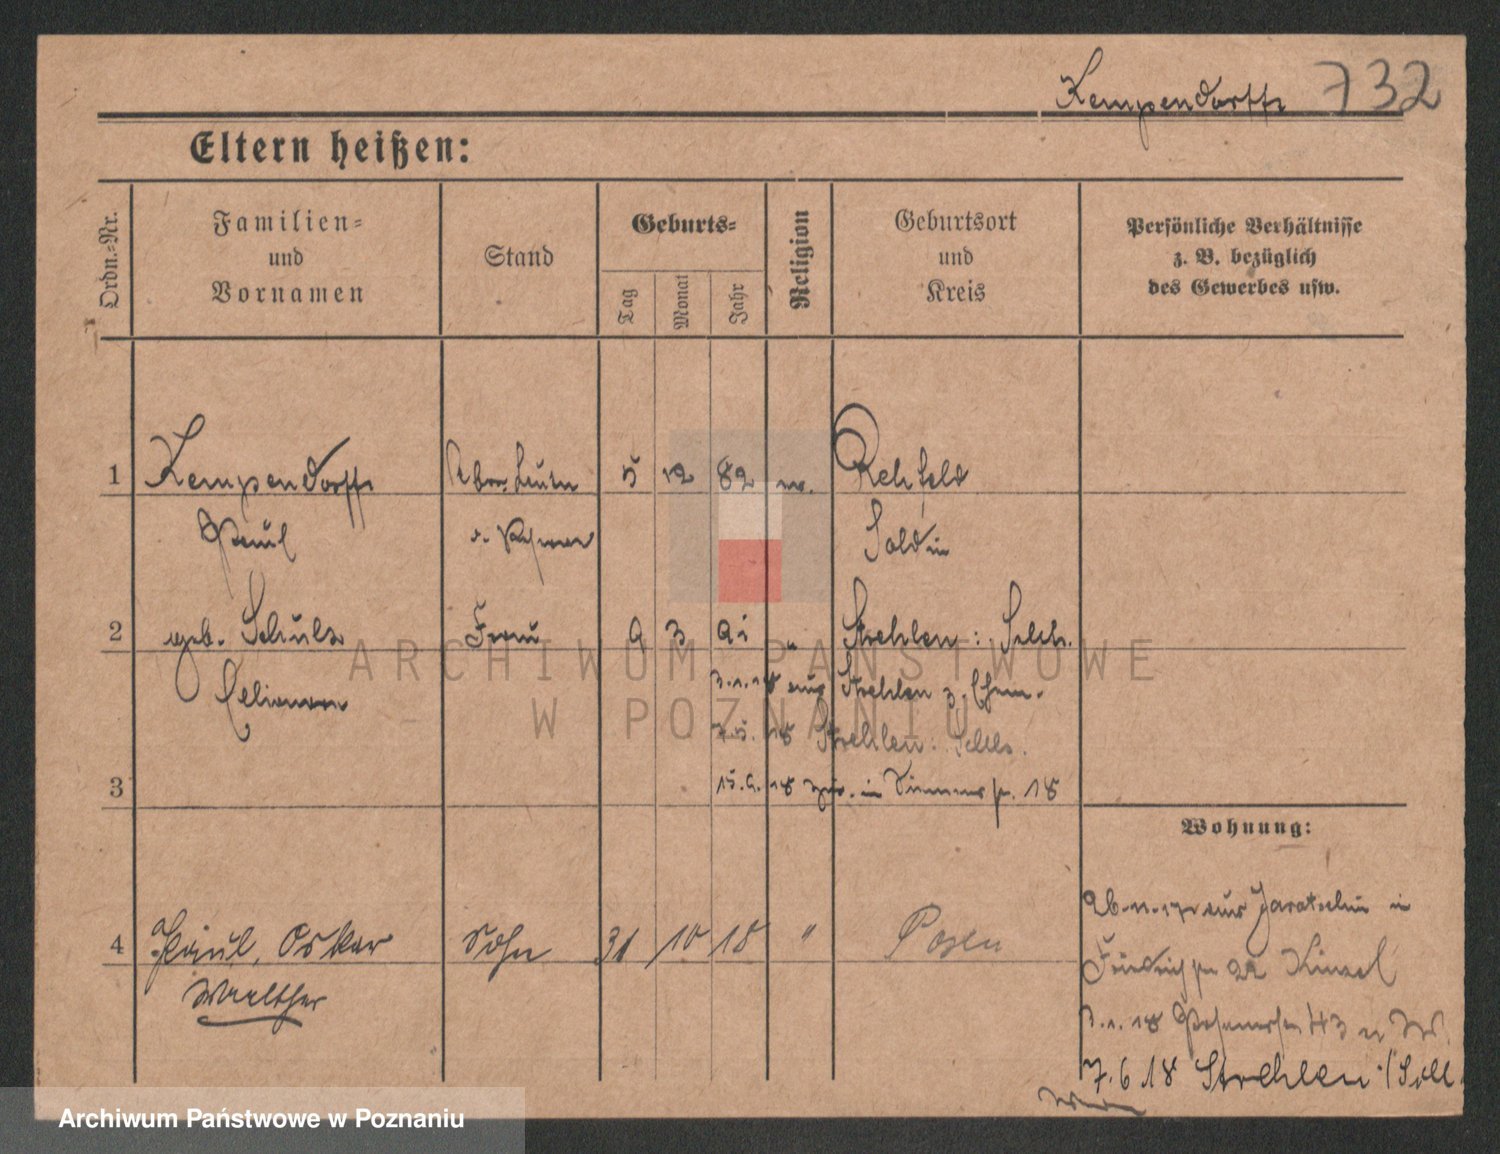 Kempendorff 732
Eltern heißen:
Ordn.-Nr.
Familien-
und
Vornamen
Stand
Geburts-
Tag
Monat
Jahr
Religion
Geburtsort
und
Kreis
Persönliche Verhältnisse
z. B. bezüglich
des Gewerbes usw.
1 Kempendorff 5 12 82 Rehfeld
Paul Soldin
2 geb. Schulz Frau 9 3 91 " Strehlen : Schles.
3.1.18 aus Strehlen
7.5.18 Strehlen : Schles.
3 15.9.18 zur. in 18
Wohnung:
4 Paul, Oskar Sohn 31 10 18 " Posen
Walther
26.11.17 aus Jarotschin in
22
3.1.18 43
7.6.18 Strehlen / Schl.
ARCHIWUM PAŃSTWOWE
W POZNANIU
Archiwum Państwowe w Poznaniu